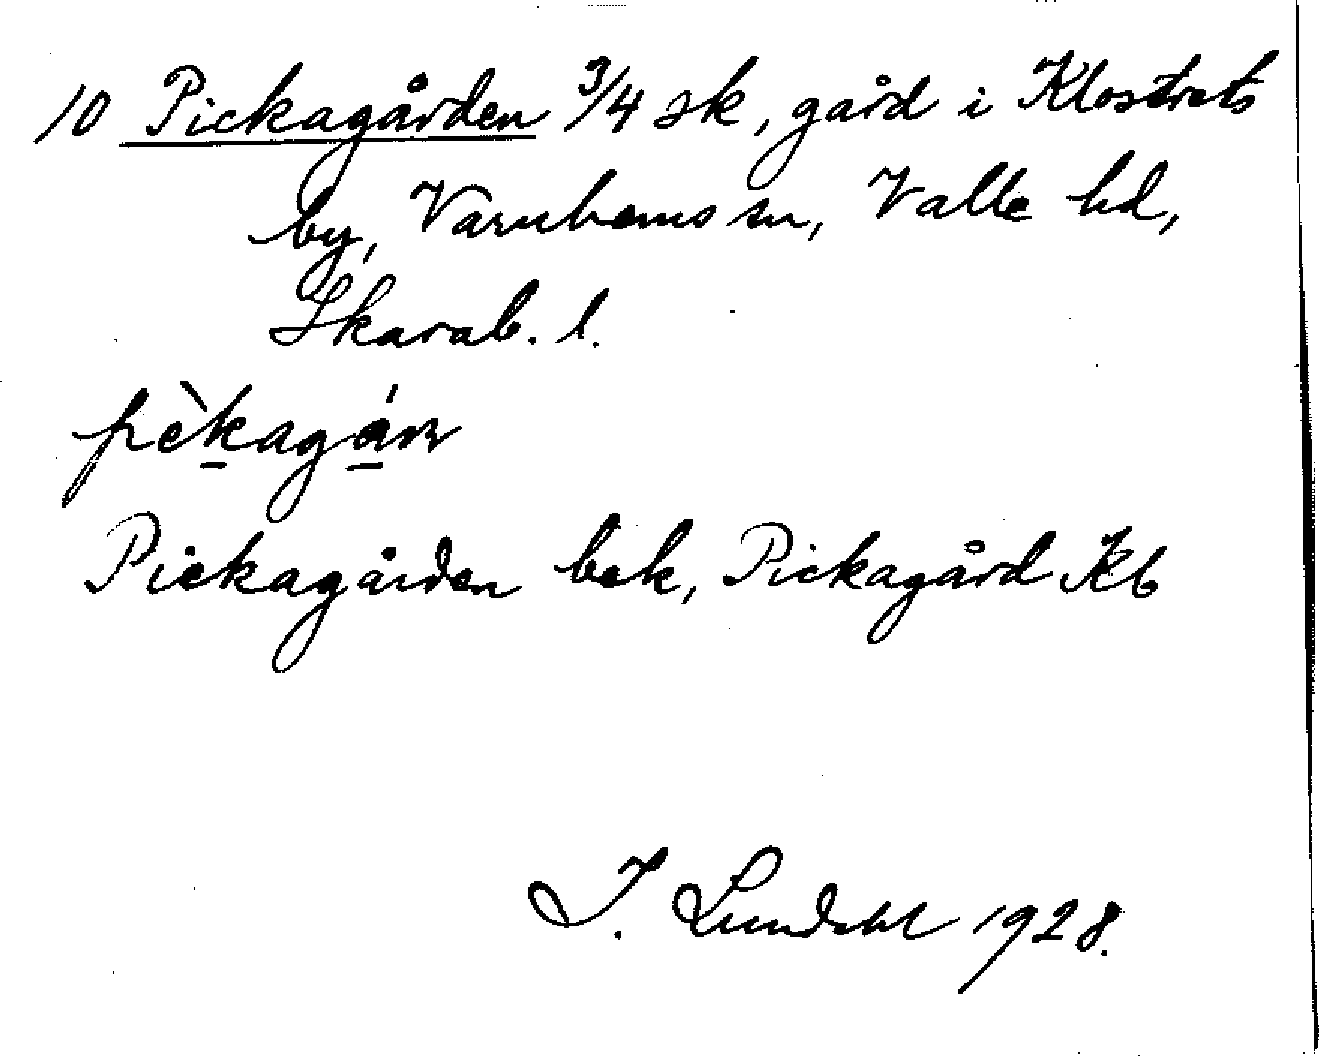 10 Pickagården 3/4 sk, gård i Klostrets
by, Varnhems sn, Valle hd,
Skarab. l.
pèkagán
Pickagården bek, Pickagård Kb
I. Lundahl 1928.